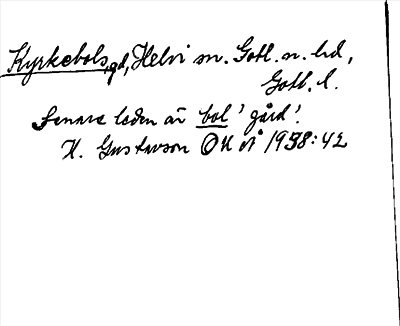 Kyrkebols, gd, Helvi sn. Gotl. n. hd,
Gotl. l.
Senare leden är bol 'gård'.
H. Gustavson OUÅ 1938:42